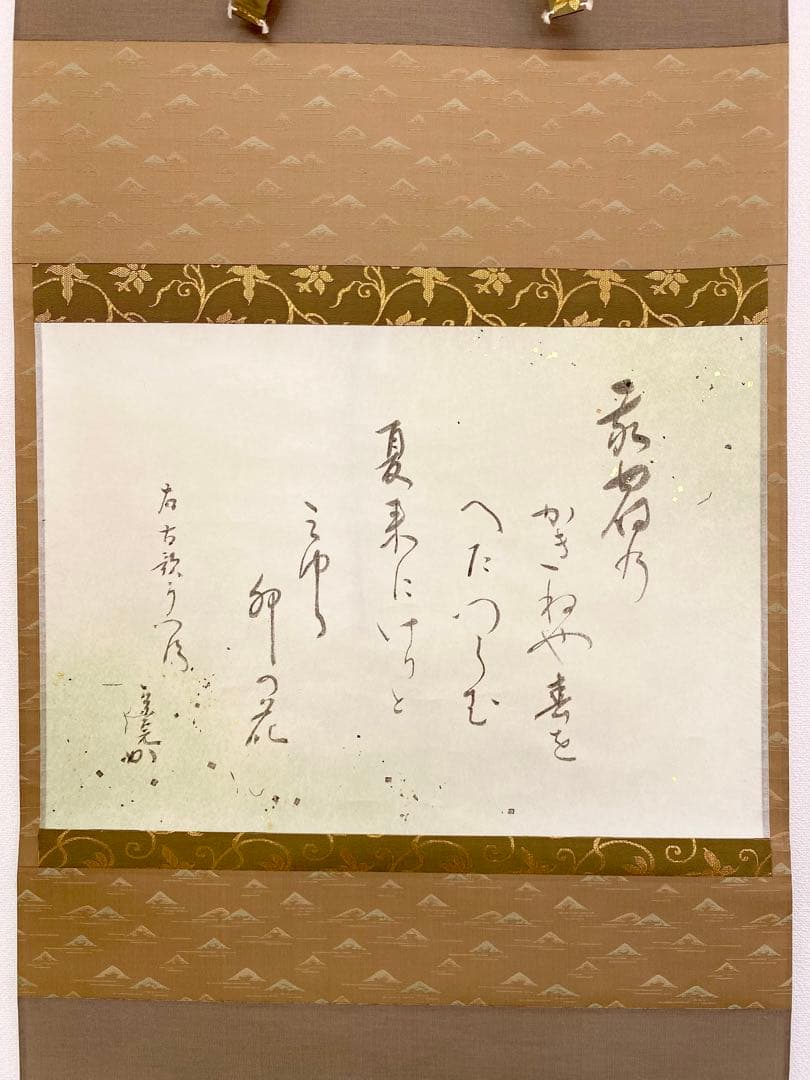 我宿乃
かきねや春を
へたつらむ
夏来にけりと
みゆる
卯の花
右古歌